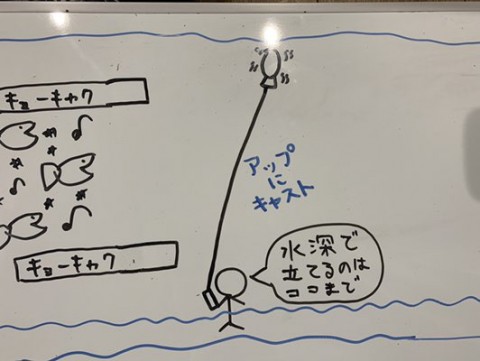 キョーキャク
アップ
に
キャスト
水深で
立てるのは
ココまで
キョーキャク